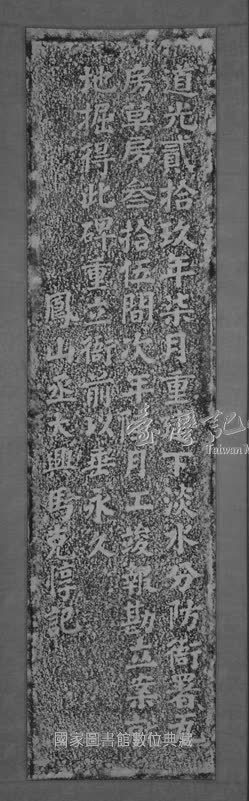 道光貳拾玖年柒月重建下淡水分防衙署瓦
房草房叁拾伍間次年月工竣報勘立案
地掘得此碑重立衙前以垂永久
鳳山丞大興馬克惇記
臺灣記
Taiwan
國家圖書館數位典藏